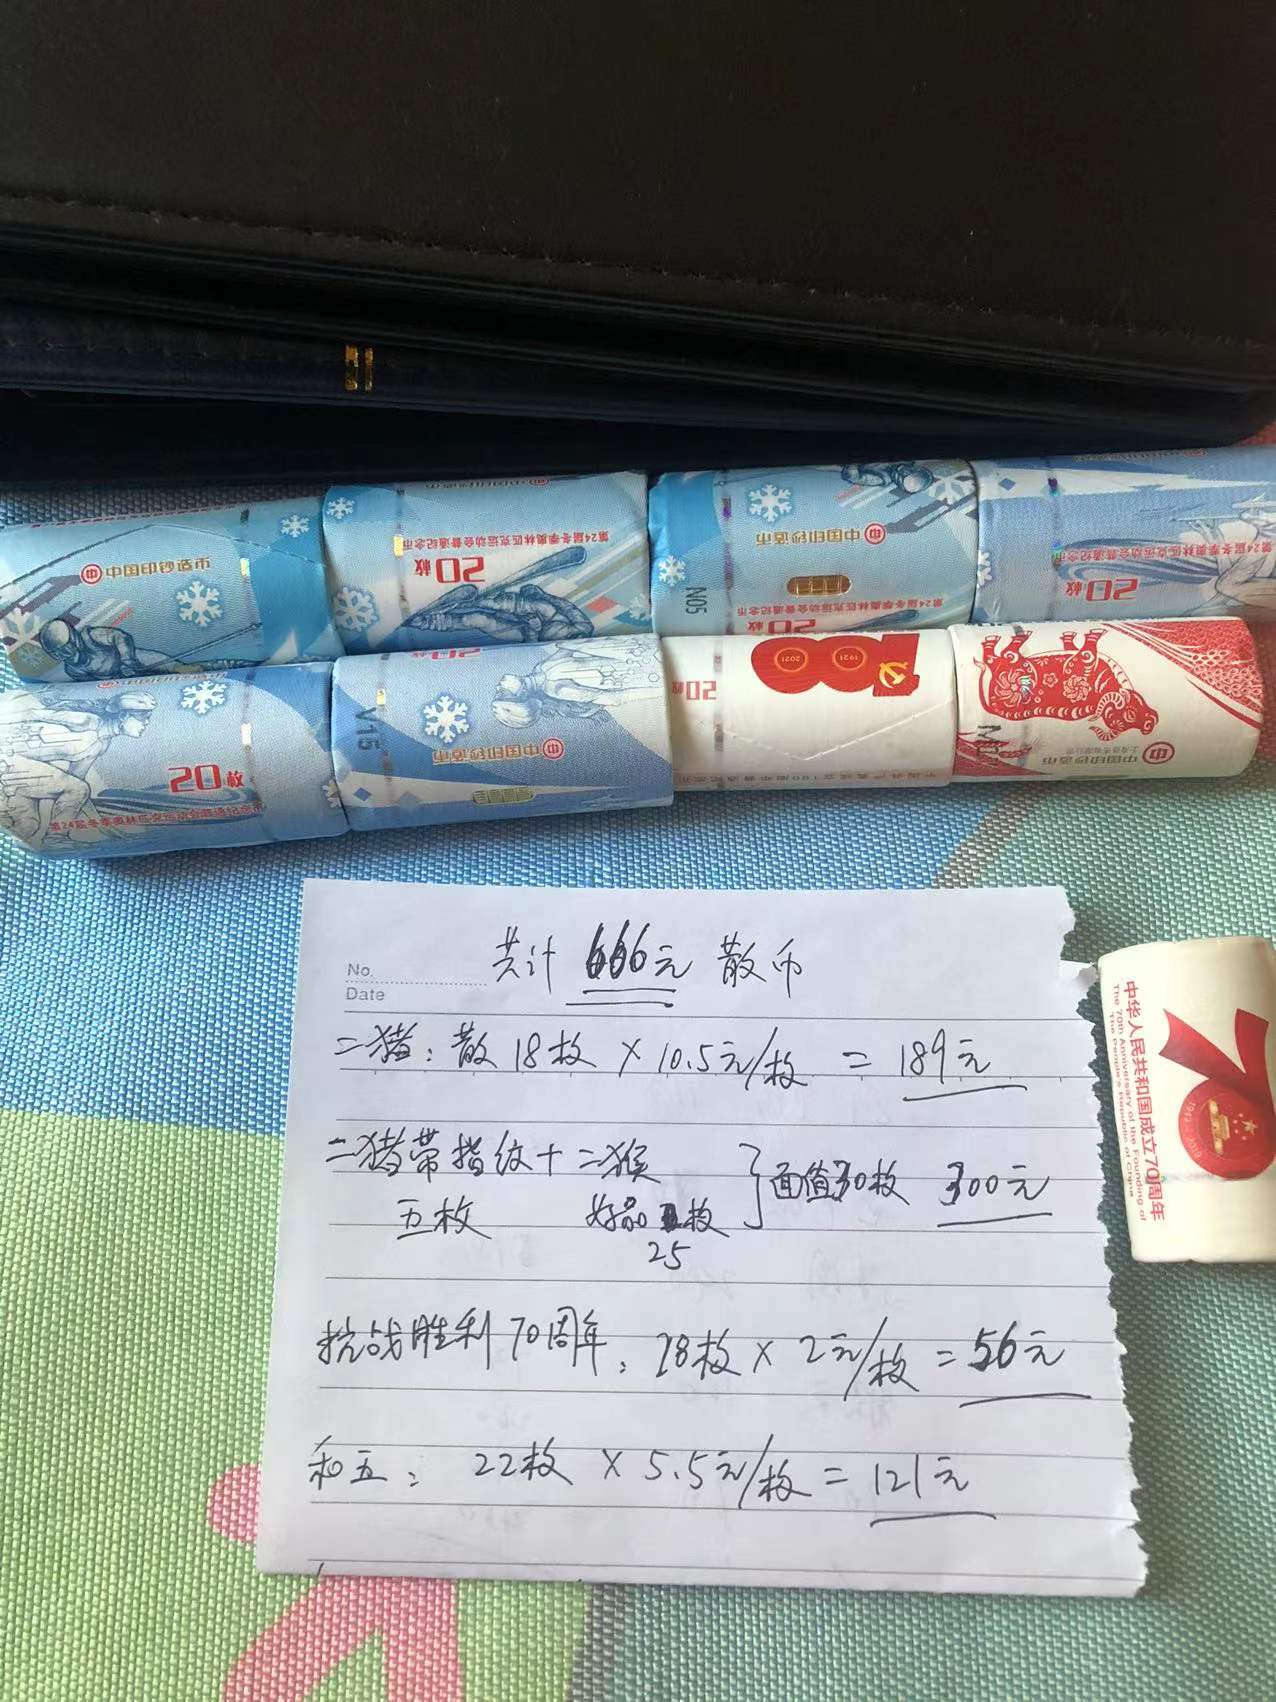 中国印钞造币
第24届冬季奥林匹克运动会普通纪念币
20枚
中国印钞造币
N05
第24届冬季奥林匹克运动会普通纪念币
20枚
第24届冬季奥林匹克运动会普通纪念币
20枚
20枚
第24届冬季奥林匹克运动会普通纪念币
20枚
V15
中国印钞造币
20枚
1921
2021
中国印钞造币
共计 666元 散币
No.
Date
二猪：散18枚 × 10.5元/枚 = 189元
二猪带指纹+二猴
五枚 好品 枚
25
面值30枚 300元
抗战胜利70周年：28枚 × 2元/枚 = 56元
和五：22枚 × 5.5元/枚 = 121元
中华人民共和国成立70周年
The 70th Anniversary of the Founding of
The People's Republic of China
70